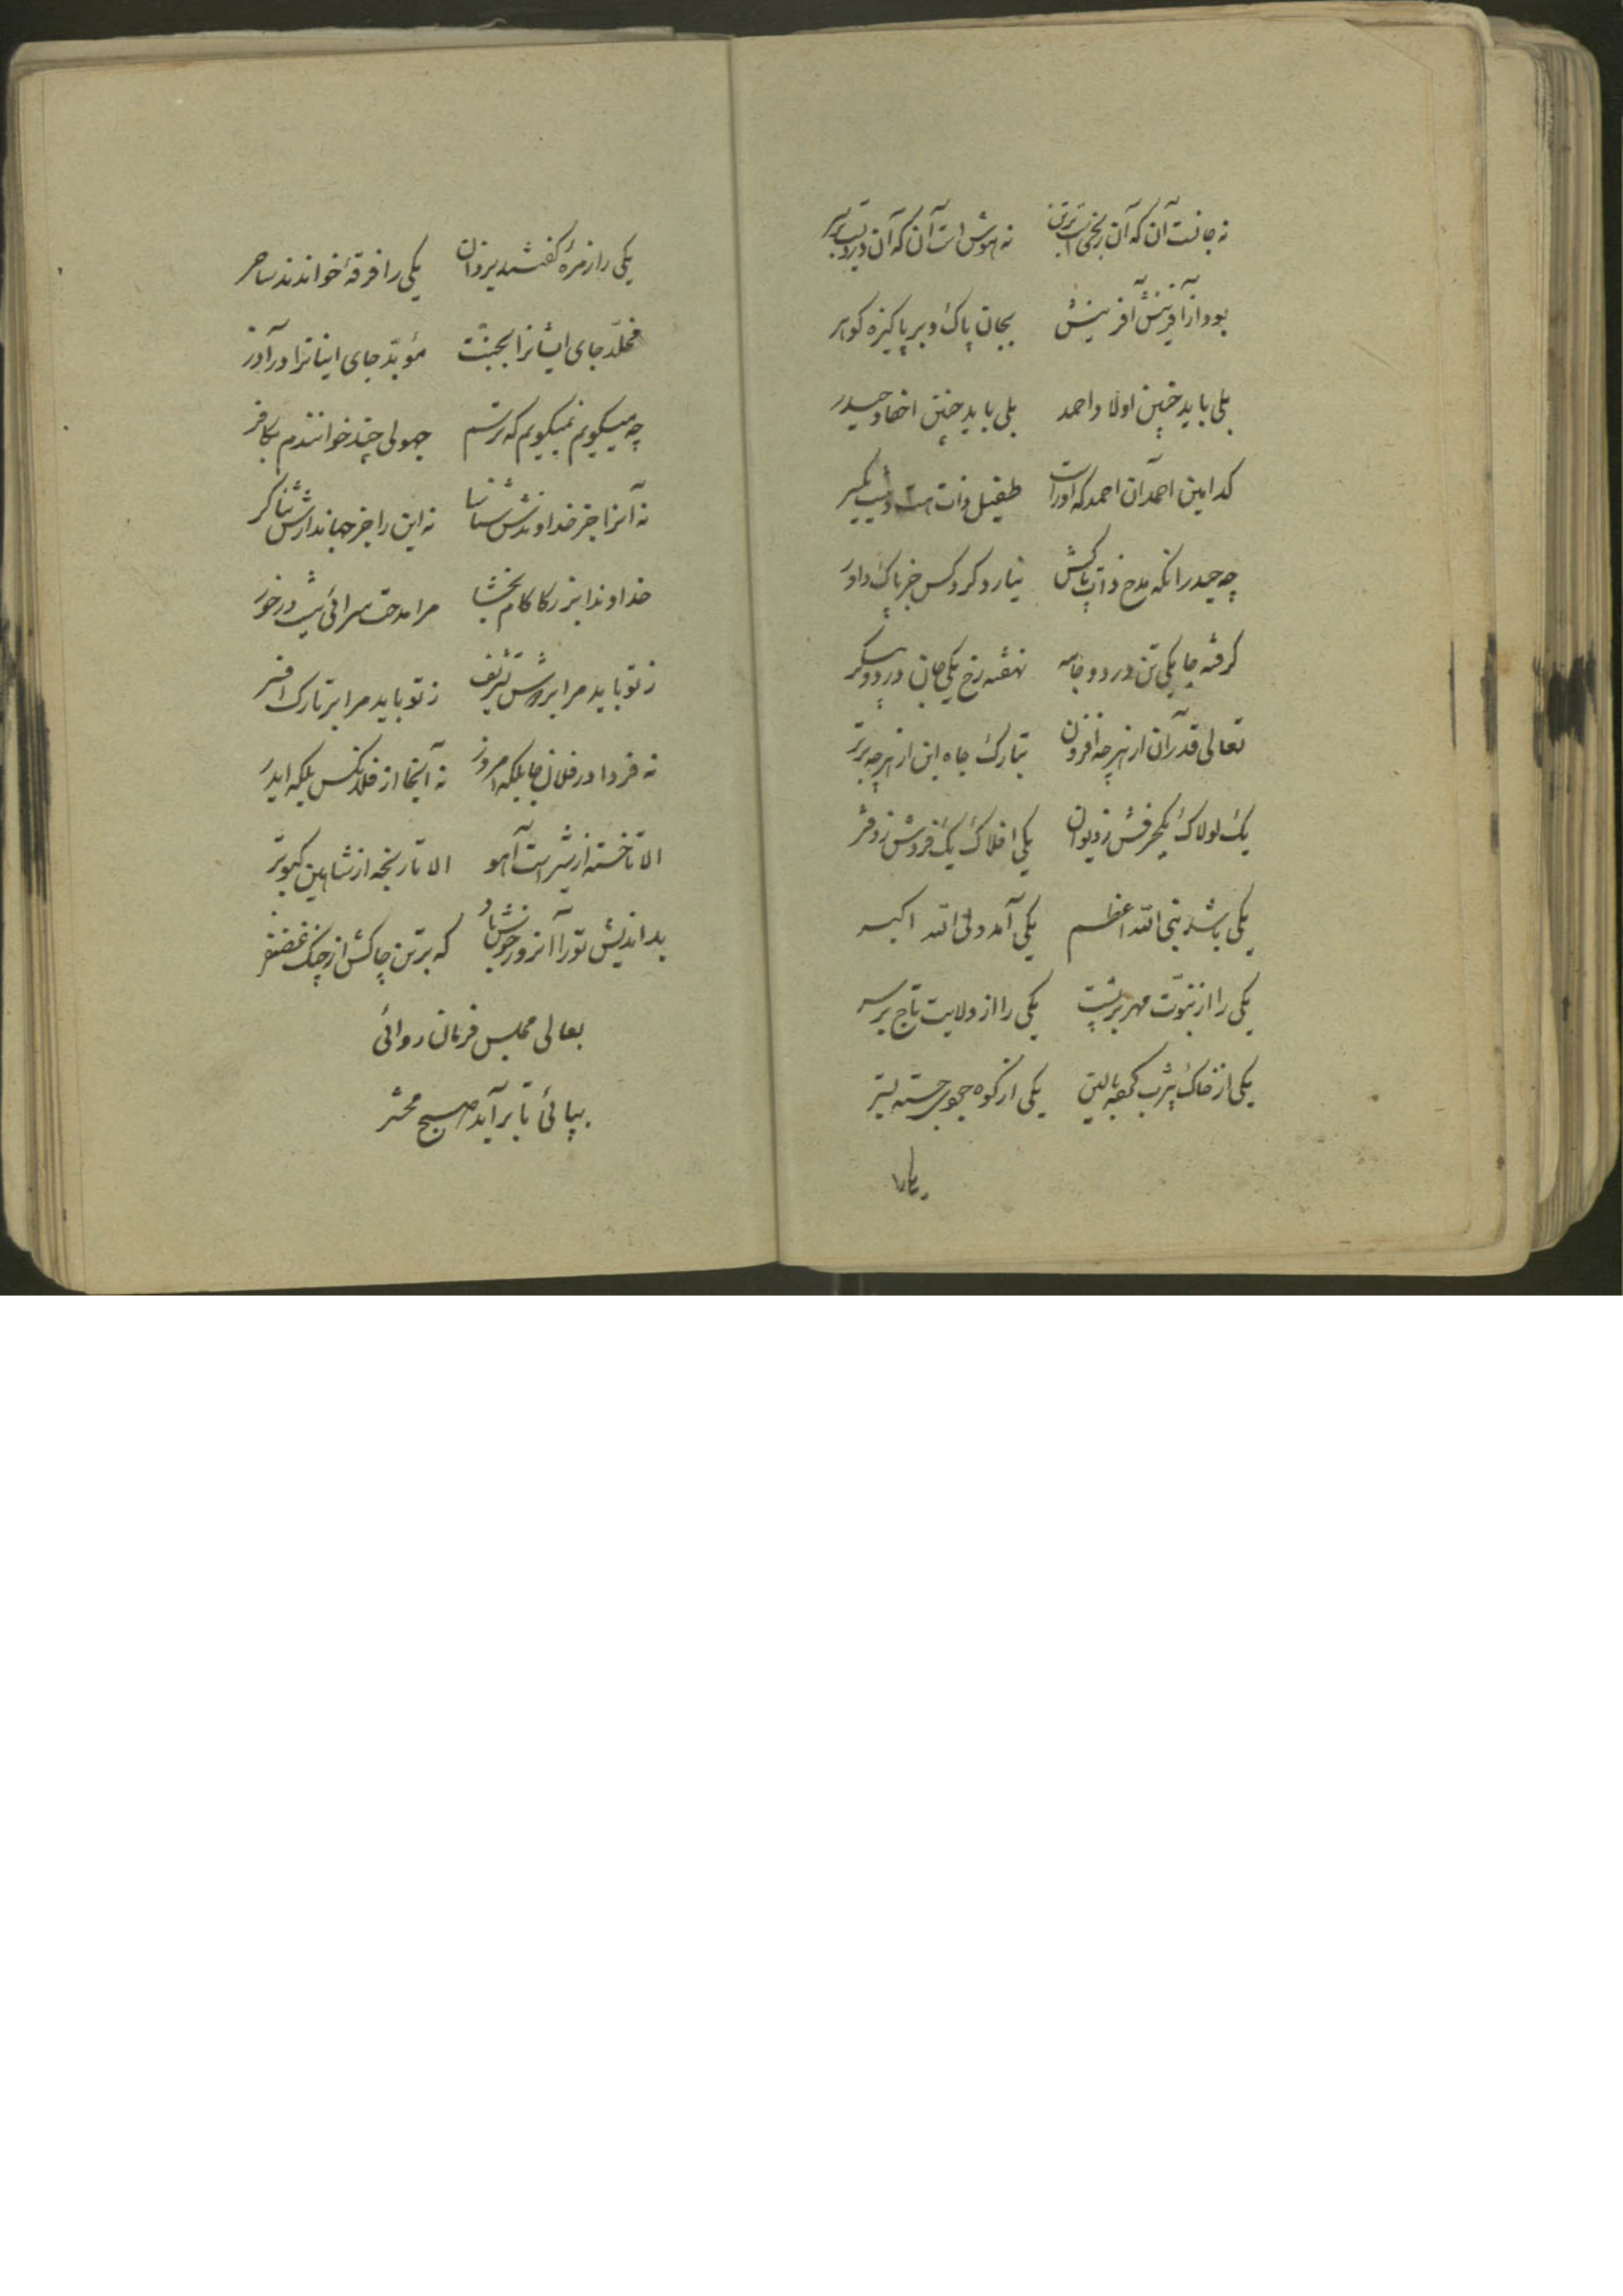 نه جانست آن که آن رنجی است بر تن نه هوش است آن که آن دردیست بر سر
بود از آفرینش آفرینش بجان پاک و بر پاکیزه کوهر
بلی باید چنین اولاد احمد بلی باید چنین احفاد حیدر
کدامین احمد آن احمد که او راست طفیل ذات هست و نیست یکسر
چه حیدر انکه مدح ذات پاکش نیارد کرد کس جز پاک داور
کرفته جا یکی تن در دو جامه نهفته رخ یکی جان در دو پیکر
تعالی قدر آن از هر چه افزون تبارک جاه این از هر چه برتر
یک لولاک یکحرفش ز دیوان یکی افلاک یک فردش ز دفتر
یکی باشد نبی الله اعظم یکی آمد ولی الله اکبر
یکی را از نبوت مهر بر پشت یکی را از ولایت تاج بر سر
یکی از خاک یثرب کرده بالین یکی از کوه جودی جسته بستر
یکی را
یکی را زمرهٔ کفتند یزدان یکی را فرقهٔ خواندند ساحر
مخلّد جای ایشانرا بجنّت مؤبّد جای اینانرا در آذر
چه میکویم نمیکویم که ترسم جهولی چند خوانندم بکافر
نه آنرا جز خداوندش شناسا نه این را جز جهاندارش ثناکر
خداوندا بزرکا کام بخشا مرا مدحت سرائی نیست درخور
ز تو باید مرا بر دوش تشریف ز تو باید مرا بر تارک افسر
نه فردا در فلان جا بلکه امروز نه آنجا از فلانکس بلکه ایدر
الا تا خسته از شیر است آهو الا تا رنجه از شاهین کبوتر
بداندیش تو را آنروز خوش باد که بر تن چاکش از چنک غضنفر
بعالی مجلس فرمان روائی
بپائی تا برآید صبح محشر